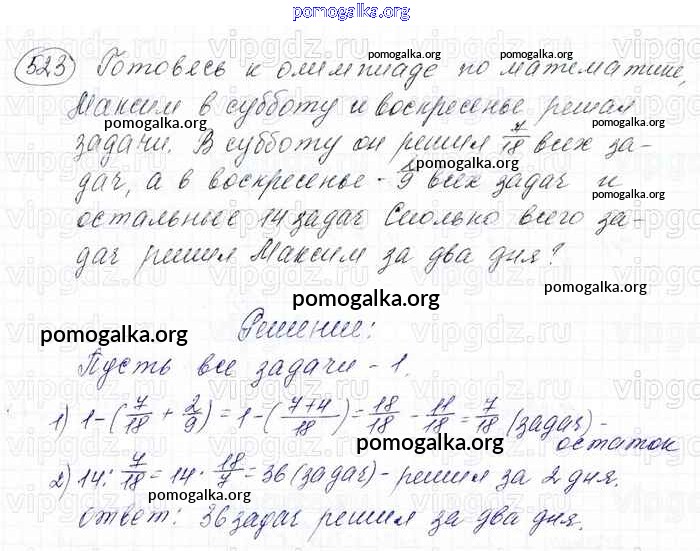 pomogalka.org
523 Готовясь к олимпиаде по математике,
pomogalka.org
Максим в субботу и воскресенье решал
pomogalka.org
задачи. В субботу он решил 7/18 всех за-
pomogalka.org
дач, а в воскресенье - /9 всех задач и
остальные 14 задач Сколько всего за-
дач решил Максим за два дня?
pomogalka.org
pomogalka.org
Решение:
pomogalka.org
Пусть все задачи - 1.
1) 1-(7/18 + 2/9) = 1-((7+4)/18) = 18/18 - 11/18 = 7/18 (задач) -
pomogalka.org остаток
2) 14: 7/18 = 14 · 18/7 = 36 (задач) - решил за 2 дня.
pomogalka.org
ответ: 36 задач решил за два дня.